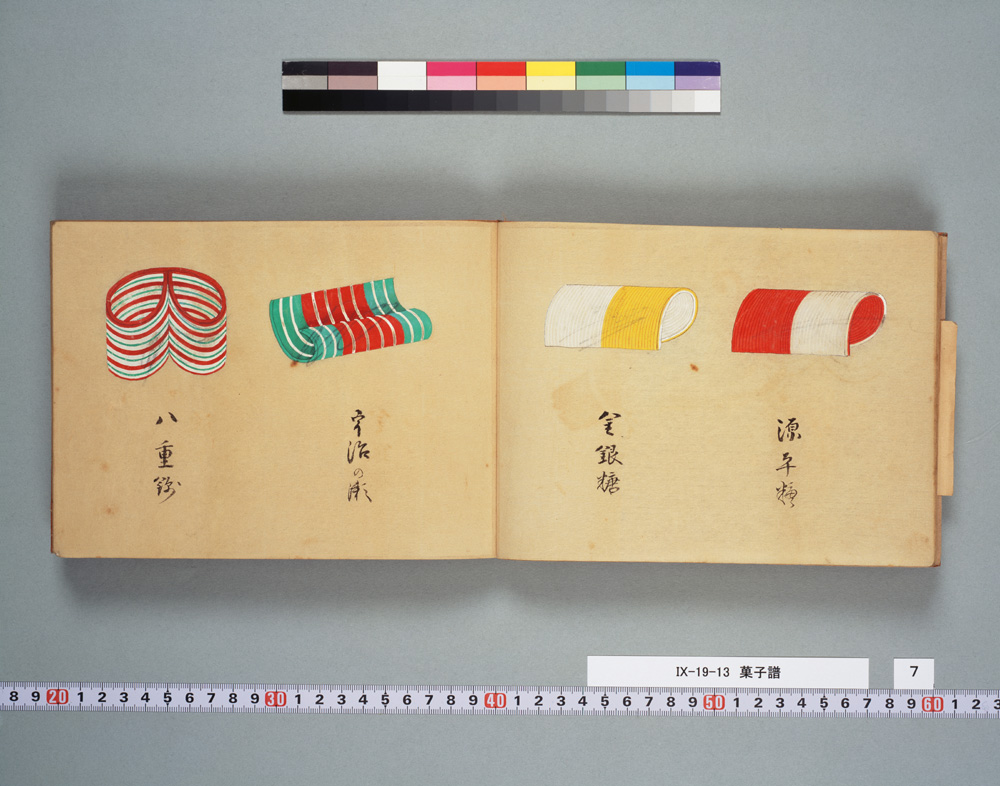 源平糖
金銀糖
宇治の瀬
八重
IX-19-13 菓子譜
7
8 9 20 1 2 3 4 5 6 7 8 9 30 1 2 3 4 5 6 7 8 9 40 1 2 3 4 5 6 7 8 9 50 1 2 3 4 5 6 7 8 9 60 1 2 3